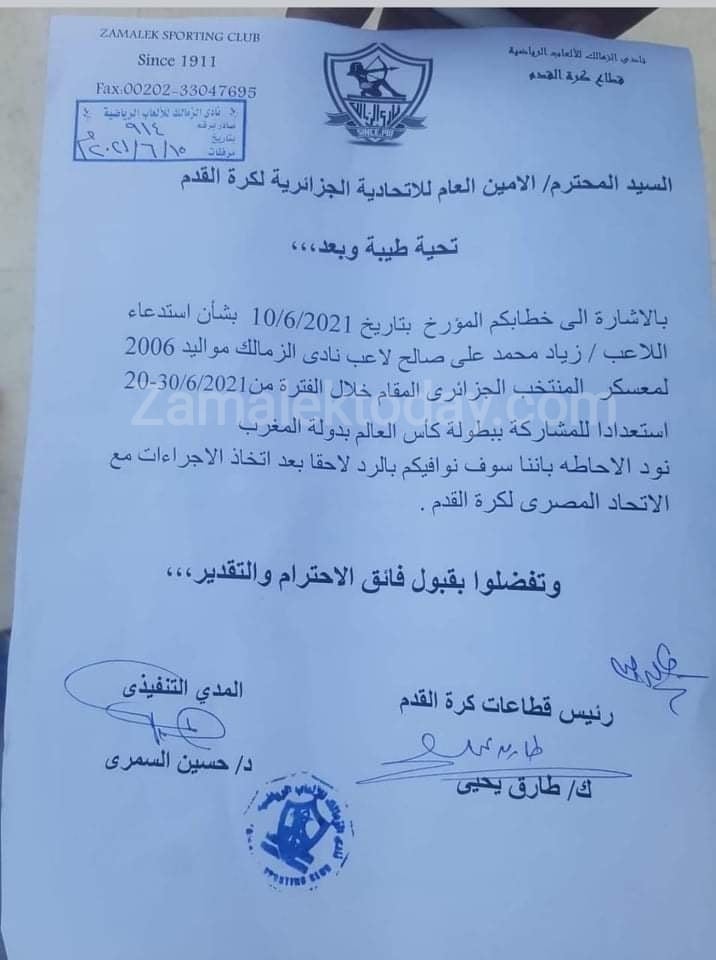 ZAMALEK SPORTING CLUB
Since 1911
Fax:00202-33047695
نادي الزمالك للألعاب الرياضية
قطاع كرة القدم
نادى الزمالك للألعاب الرياضية
صادر برقم ٩١٤
بتاريخ ٢٠٢١/٦/١٥
مرفقات
نادى الزمالك
SINCE 1911
السيد المحترم/ الامين العام للاتحادية الجزائرية لكرة القدم
تحية طيبة وبعد،،،
بالاشارة الى خطابكم المؤرخ بتاريخ 10/6/2021 بشأن استدعاء
اللاعب / زياد محمد على صالح لاعب نادى الزمالك مواليد 2006
لمعسكر المنتخب الجزائرى المقام خلال الفترة من20-30/6/2021
Zamalektoday.com
استعدادا للمشاركة ببطولة كأس العالم بدولة المغرب
نود الاحاطه باننا سوف نوافيكم بالرد لاحقا بعد اتخاذ الاجراءات مع
الاتحاد المصرى لكرة القدم .
وتفضلوا بقبول فائق الاحترام والتقدير،،،
رئيس قطاعات كرة القدم
ك/ طارق يحيى
المدي التنفيذى
د/ حسين السمرى
نادى الزمالك للألعاب الرياضية
SPORTING CLUB